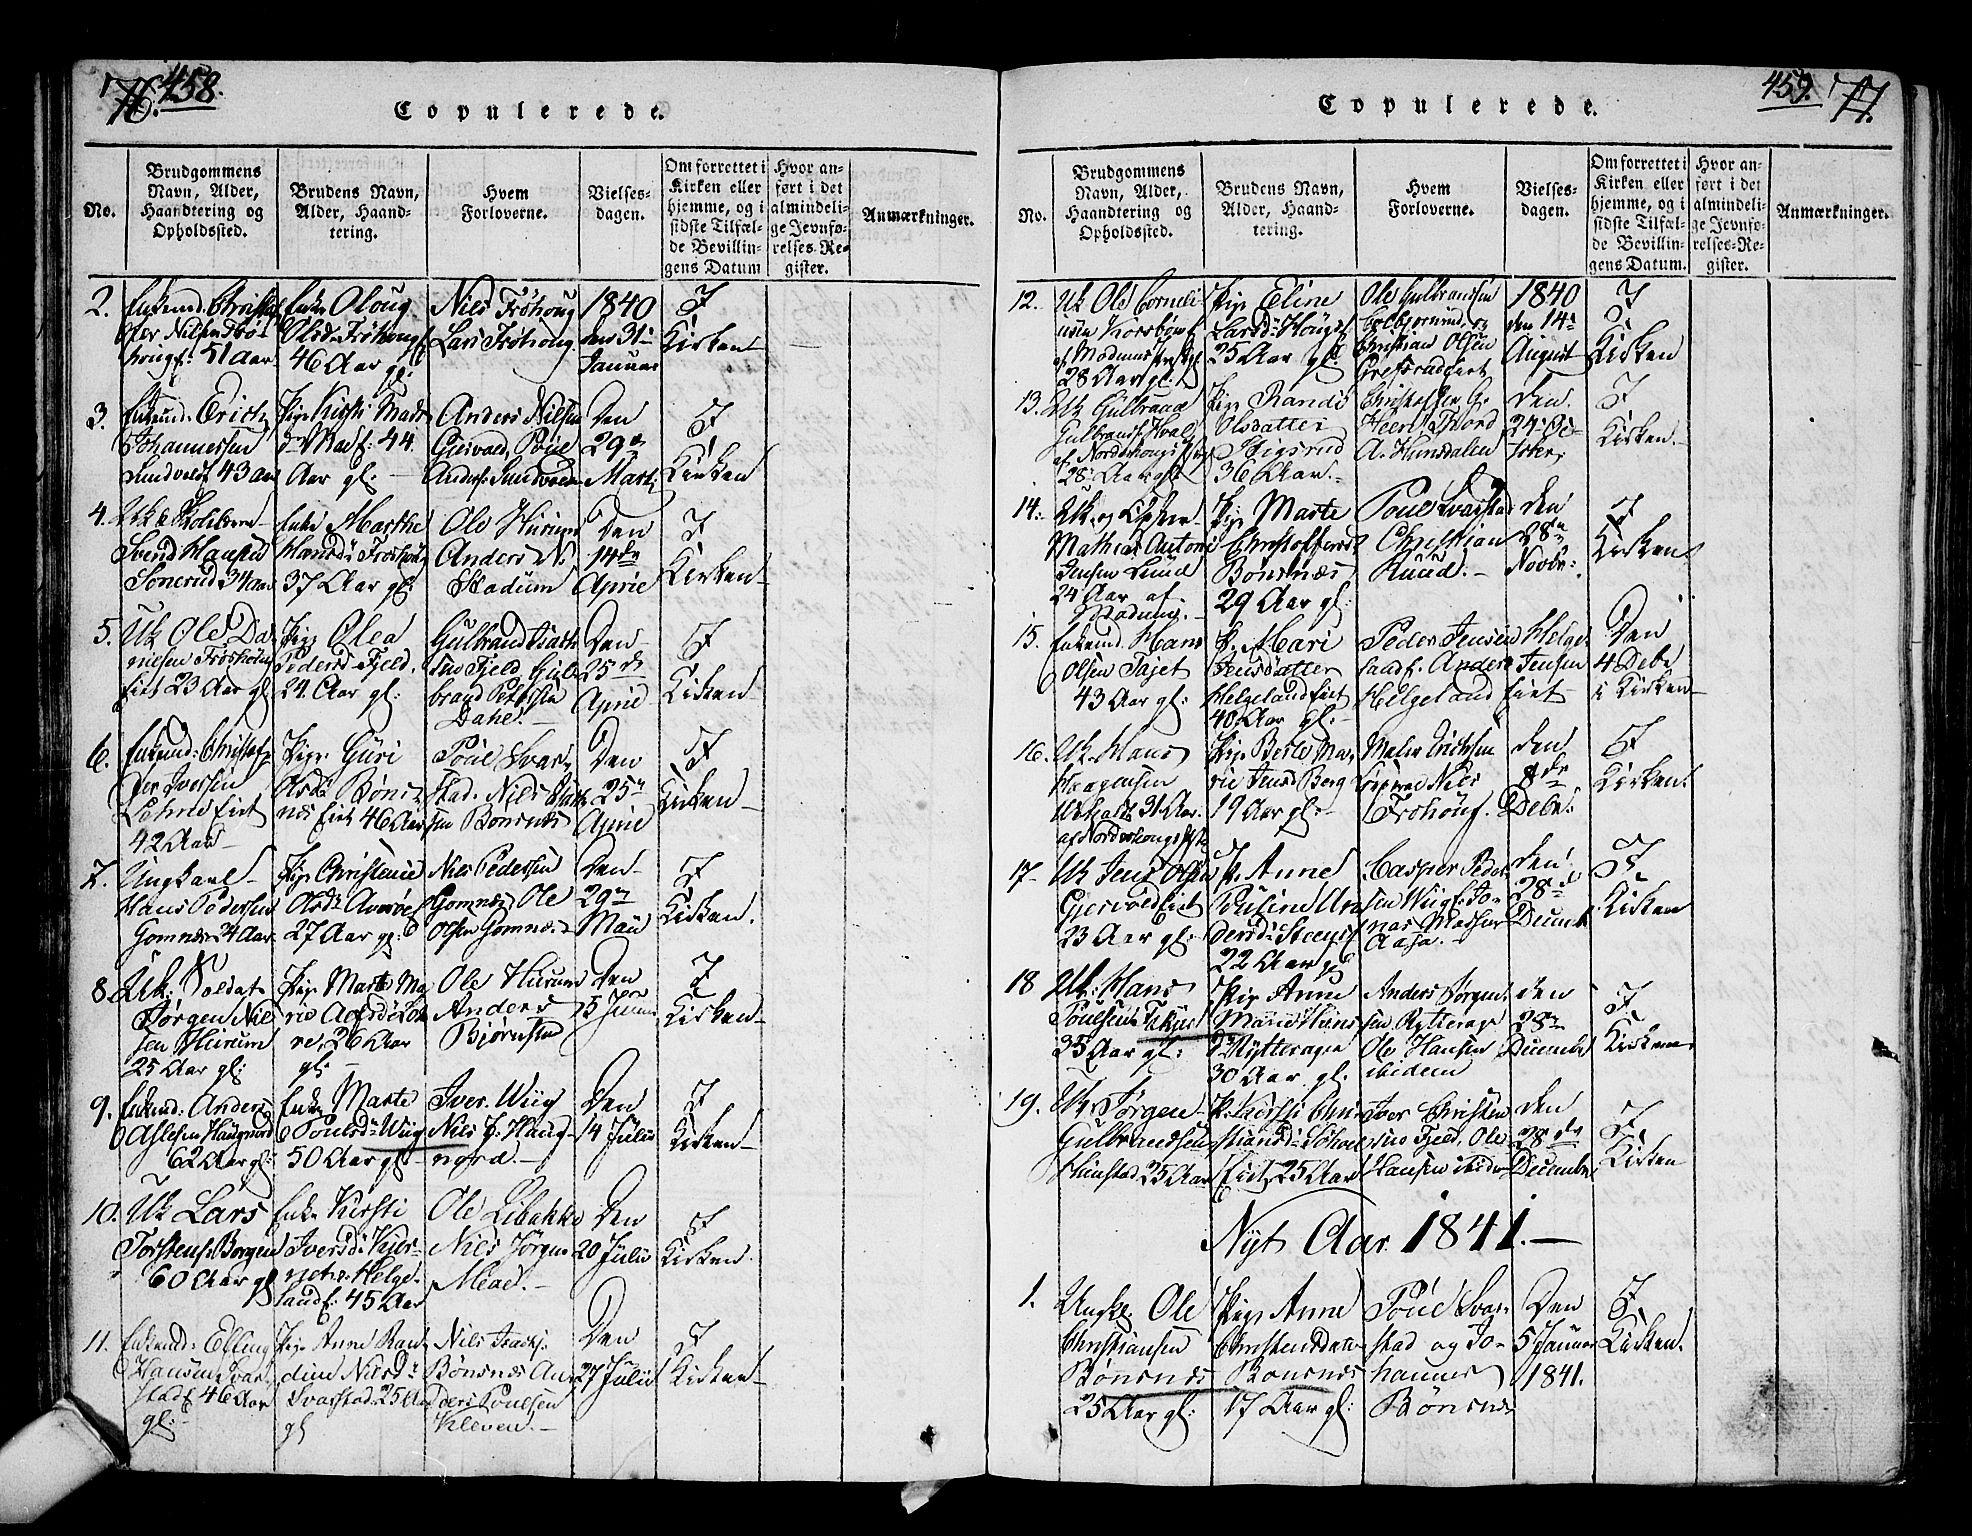 176. 458.
Copulerede.
No.
Brudgommens Navn, Alder, Haandtering og Opholdssted.
Brudens Navn, Alder, Haandtering.
Hvem Forloverne.
Vielsesdagen.
Om forrettet i Kirken eller hjemme, og i sidste Tilfælde Bevillingens Datum
Hvor anført i det almindelige Jevnførelses-Register.
Anmærkninger.
2. Enkemd. Christof
fer Nilsen Frö-
hougf. 51 Aar
Enke Oloug
Olsd. Fröhougf
46 Aar gl.
Niels Fröhoug
Lars Fröhoug
1840
den 31te
Januar
I
Kirken
3. Enkemd. Erich
Johannessen
Sundvoldf 43 aar
Pige Kirsti Mads
dr Madf. 44.
Aar gl:
Anders Nilsen
Gjesvold, Poul
Anders. Sundvolden
Den
29de
Marts
I
Kirken
4.
Svend Hansen
Sonerud 34 aar
Enke Marthe
Hansd. Froshoug
37 Aar gl:
Ole Hurum
Anders N.
Stadum
Den
14de
April
I
Kirken
5. Uk Ole Da-
nielsen Froshoug
Eiet 23 Aar gl
Pige Olea
Pedersd Fjeld.
24. Aar gl:
Gulbrand Isach
sen Fjeld Gul-
brand Pedersen
Dahl.
Den
25de
April
I
Kirken
6. Enkemd: Christof-
fer Iversen
Lehne Eiet
42 Aar
Pige Guri
Olsd. Böns-
nes Eiet 46 Aar
Poul Svar-
stad. Niels Isach
sen Bönsnæs
Den
25de
April
I
Kirken
7. Ungkarl
Hans Pedersen
Gomnæs 24 Aar
Pige Christense
Olsd.
27 Aar gl:
Niels Pedersen
Gomnæs Ole
Olsen Gomnæs
Den
29de
Maii
I
Kirken.
8. Uk. Soldat
Jörgen Niel
sen Hurum
25 Aar gl:
Pige Marte Ma-
rie
26 Aar
gl:
Ole Hurum
Anders
Björnsen
Den
5 Junii
I
Kirken
9. Enkemd: Anders
Aslesen Haugnord
62 Aar gl:
Enke Marte
Poulsd. Wiig
50 Aar gl:
Iver Wiig
Niels P. Haug-
nord.
Den
14 Julii
I
Kirken
10. Uk Lars
Torstens. Borgen
60 Aar gl
Enke Kirsti
Iversd.
Helge-
landf: 45 Aar
Ole Libakke
Niels Jörgens
Moe.
Den
20 Julii
I
Kirken.
11. Enkemd: Elling
Hansen Svar-
stad 46 Aar
gl:
Pige Anne Ran-
dine Nielsd
Svarstad 25 Aar
gl
Niels Isachs.
Bönsnæs An-
ders Poulsen
Kleven.
Den
27 Julii
I
Kirken
459. 177.
Copulerede.
No.
Brudgommens Navn, Alder, Haandtering og Opholdssted.
Brudens Navn, Alder, Haandtering.
Hvem Forloverne.
Vielsesdagen.
Om forrettet i Kirken eller hjemme, og i sidste Tilfælde Bevillingens Datum.
Hvor anført i det almindelige Jevnførelses-Register.
Anmærkninger.
12. Uk Ole Corneli-
usen
af Modums Prgj.
28 Aar gl:
Pige Eline
Larsd.
25 Aar gl.
Ole Gulbrandsen
Christian Olsen
1840
den 14de
August
I
Kirken
13. Uk Gulbrand
Gulbrands. Hval
af Norderhougs Prgj
28 Aar gl
Pige Randi
Olsdatter
Stigsrud
36 Aar.
Christoffer G.
A. Hundsdalen
Den
24
I
Kirken.
14.
Mathias Antoni
Jensen Lund
24 Aar af
Modum.
Pige Marte
Christoffersd
Bönsnæs
29 Aar gl:
Poul Svarstad
Christian
Ruud.
Den
28de
Novbr:
I
Kirken
15. Enkemd. Hans
Olsen Tajet
43 Aar gl:
P. Mari
Jensdatter
Helgelandseiet
40 Aar gl:
Peder Jensen Helge-
landf. Anders Jensen
Helgeland Eiet
Den
4 Debr
i Kirken
16. Uk. Hans
Haagensen
31 Aar.
af Norderhougs Prgj
Pige Berte Ma-
rie Jensd Berg
19 Aar gl:
Erichsen
Niels
Fröhoug.
Den
8de
Debr.
I
Kirken.
17. Uk Jens Olsen
Gjesvold Eiet
23 Aar gl:
P. Anne
Pouline An-
dersd.
22 Aar gl
Casper Peder-
sen Wiig. Jo-
nas Madsen
Aasa.
Den
28de
Decemb
I
Kirken
18 Uk. Hans
Poulsen
35 Aar gl:
Pige Anne
Hans
dr Rytteragen
30 Aar gl.
Anders Jörgen-
sen Rytterager
Ole Hansen
ibidem
Den
28de
Decembr
I
Kirken
19. Uk. Jörgen
Gulbrandsen
25 Aar
P. Kirsti Chri-
stiansd.
Eiet, 25 Aar
Iver Christen
sen Fjeld, Ole
Hansen ibidem
Den
28de
December
I
Kirken
Nyt Aar 1841.
1. Ungk. Ole
Christiansen
Bönsnæs
25 Aar gl:
Pige Anne
Christensdatr
Bonsnæs
17 Aar gl:
Poul Svar-
stad og Jo-
hannes
Bönsnæs
Den
5 Januar
1841.
I
Kirken.